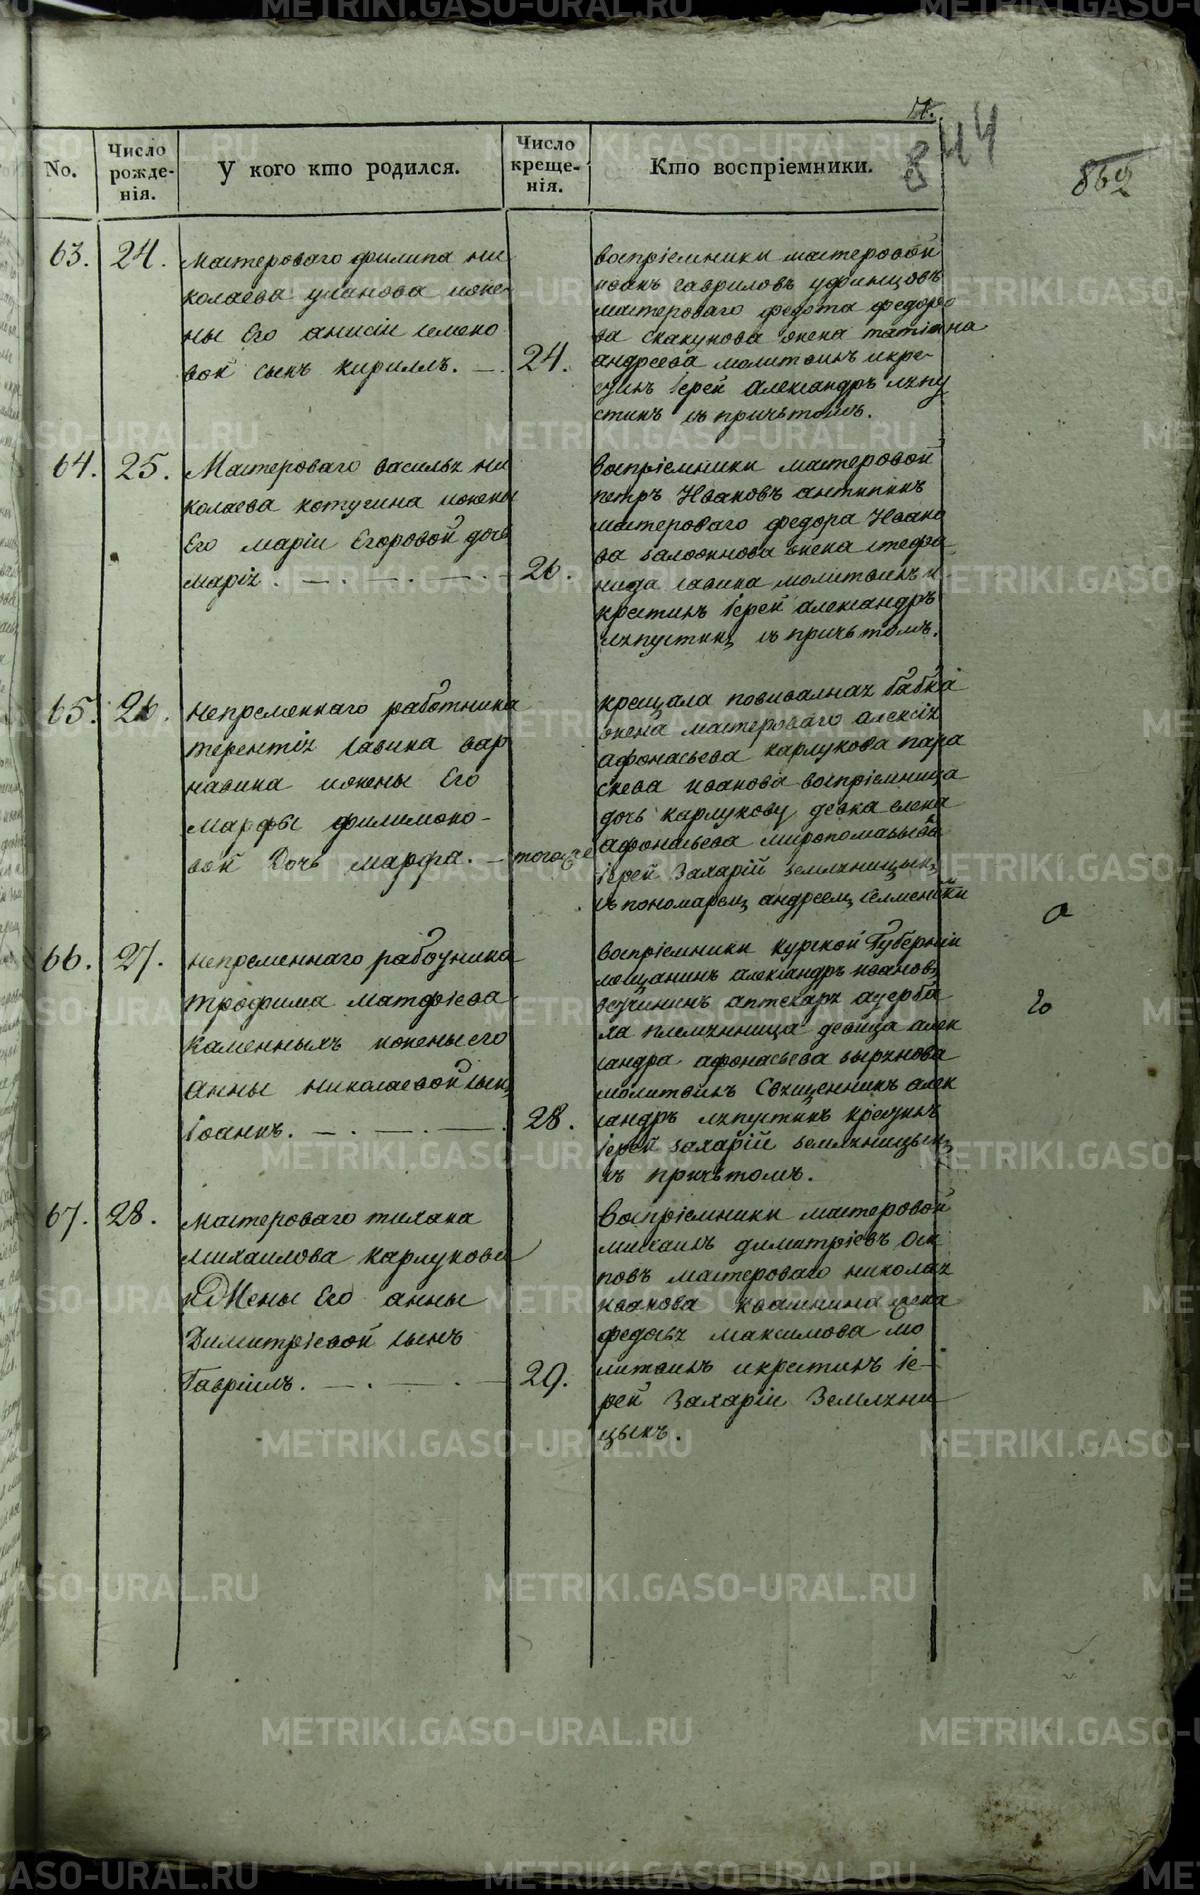 844
862
No.
Число рожде-
нія.
У кого кто родился.
Число креще-
нія.
Кто воспріемники.
63.
24.
мастероваго филипа ни
колаева уланова ижe
ны Его анисіи семено
вой сынъ кириллъ.
24.
воспріемники мастеровой
иванъ гавриловъ уфинцовъ
мастероваго федота федоро
ва скакунова жена татіяна
андреева молитвилъ икре-
стилъ іерей Александръ ляпу
стинъ съ причьтомъ.
64.
25.
Мастероваго василья ни
колаева котугина ижены
Его маріи Егоровой дочь
марія.
26.
воспріемники мастеровой
петръ Ивановъ антипинъ
мастероваго федора Ивано
ва жена стефа
нида савина молитвилъ и
крестилъ іерей александръ
ляпустинъ съ причьтомъ.
65.
26.
непременнаго работника
терентія савина вар
навина ижены Его
марфы филимоно-
вой Дочь марфа.
тогоже
крещала повивалная бабка
жена мастероваго алексія
афонасьева карлукова пара
скева иванова воспріемница
дочь карлукову девка елена
афонасьева миропомазывалъ
іерей Захарій Земляницынъ
съ пономаремъ андреемъ
66.
27.
непременнаго работника
трофима матфіева
Каменныхъ ижены его
анны николаевой сынъ
Іоаннъ.
28.
воспріемники курской Губерніи
мещанинъ александръ ивановъ
аптекаря ауерба
ха племянница девица алек
сандра афонасьева вырянова
молитвилъ Священникъ алек
сандръ ляпустинъ крестилъ
іерей захарій земляницынъ
съ причьтомъ.
67.
28.
мастероваго тихана
михаилова карлукова
и Жены Его анны
Димитріевой сынъ
Гавріилъ.
29.
Воспріемники мастеровой
михаилъ димитріевъ Оси
повъ мастероваго николая
иванова квашнина жена
федосья максимова мо
литвилъ икрестилъ іе-
рей Захарій Земляни
цынъ.